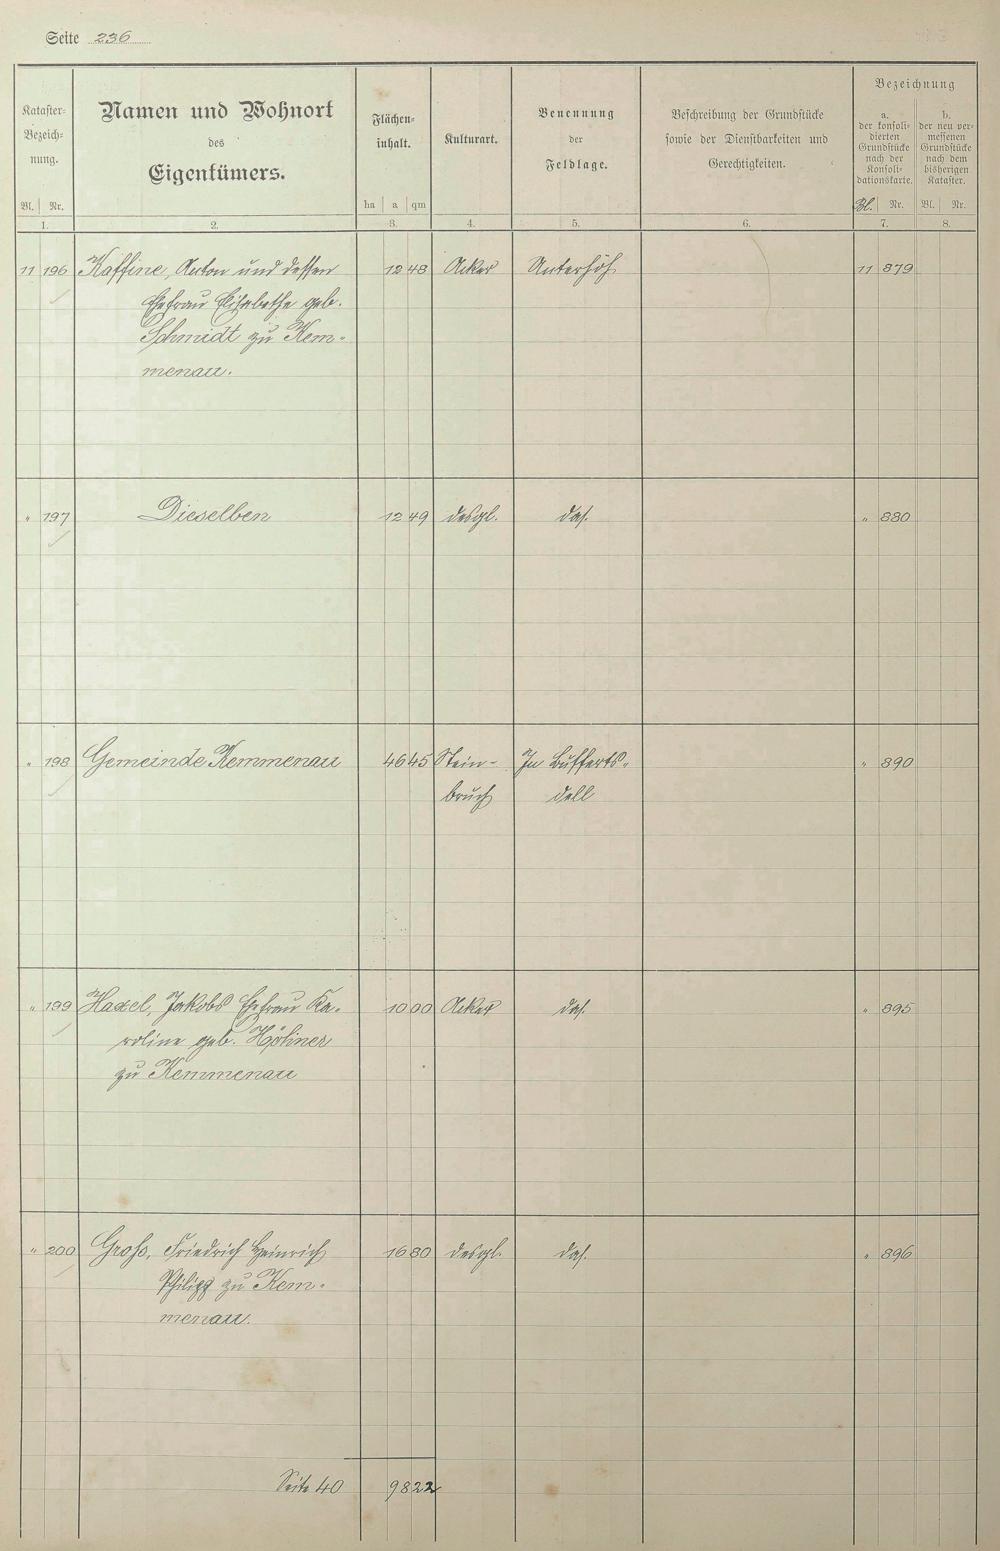 Seite 236
Kataster-Bezeichnung.
Namen und Wohnort
des
Eigentümers.
Flächeninhalt.
Kulturart.
Benennung
der
Feldlage.
Beschreibung der Grundstücke
sowie der Dienstbarkeiten und
Gerechtigkeiten.
Bezeichnung
a.
der konsoli-
dierten
Grundstücke
nach der
Konsoli-
dationskarte.
b.
der neu ver-
messenen
Grundstücke
nach dem
bisherigen
Kataster.
Bl. Nr. ha a qm Bl. Nr. Bl. Nr.
1. 2. 3. 4. 5. 6. 7. 8.
11 196 Kaffine, Anton und dessen 12 48 Acker Unterhöh 11 879
Ehefrau Elisabethe geb.
Schmidt zu Kem-
menau.
" 197 Dieselben 12 49 desgl. das. " 880
" 198 Gemeinde Kemmenau 46 45 Stein- In Bufferts- " 890
bruch dell
" 199 Haxel, Jakobs Ehefrau Ka- 10 00 Acker das. " 895
roline geb.
zu Kemmenau
" 200 Groß, Friedrich Heinrich 16 80 desgl. das. " 896
Philipp zu Kem-
menau.
Seite 40 98 22